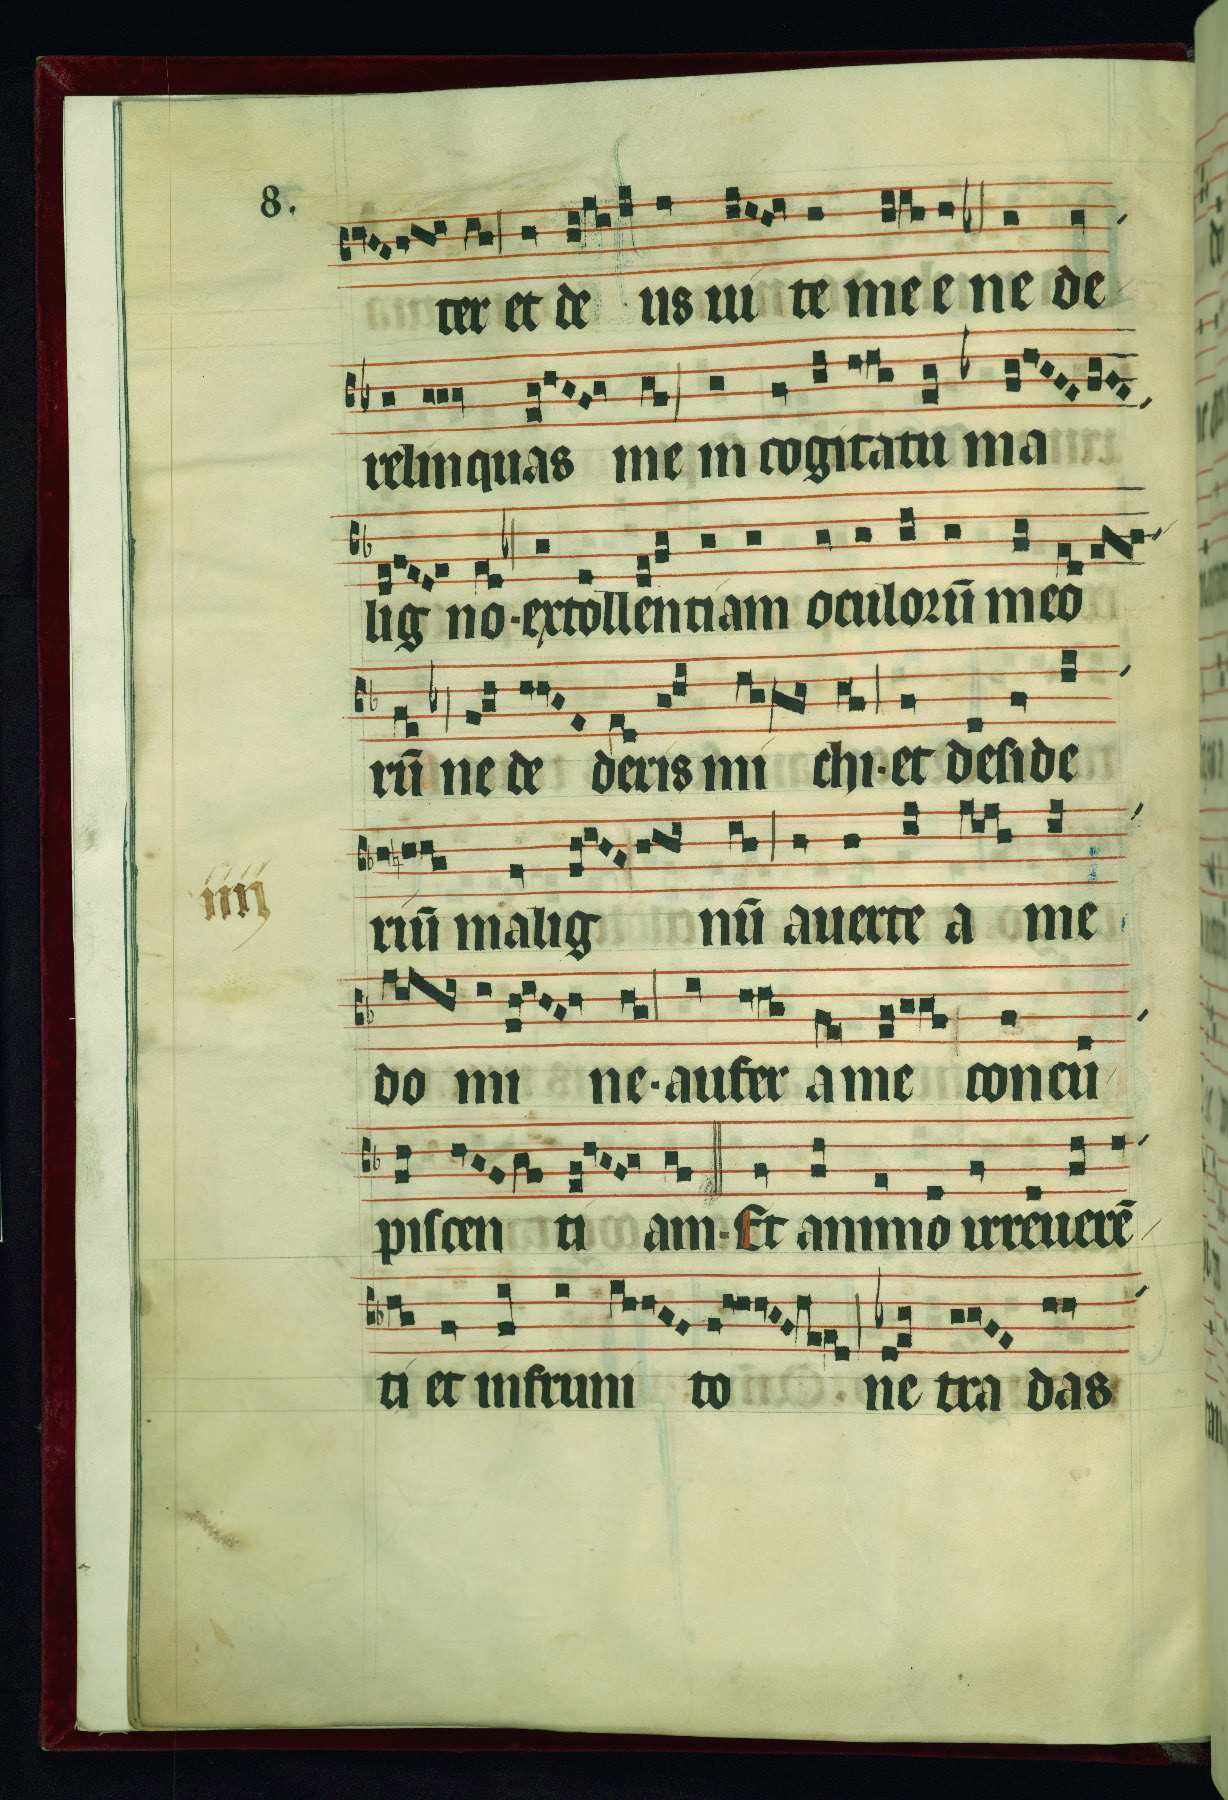 8.
ter et de us ui te me e ne de
relinquas me in cogitatu ma
lig no · extollentiam oculorū meo
rū ne de deris mi chi · et deside
riū malig nū auerte a me
iiij
do mi ne · aufer a me concu
piscen ti am · Et animo irreuerē
ti et infruni to ne tra das